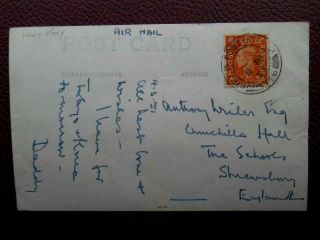 Hong Kong
AIR MAIL
POST CARD
CORRESPONDENCE
ADDRESS
4-6-51
All best love &
wishes -
I leave for
Tokyo & Korea
tomorrow -
Daddy
Anthony Esq
Churchill Hall
The Schools
Shrewsbury
England